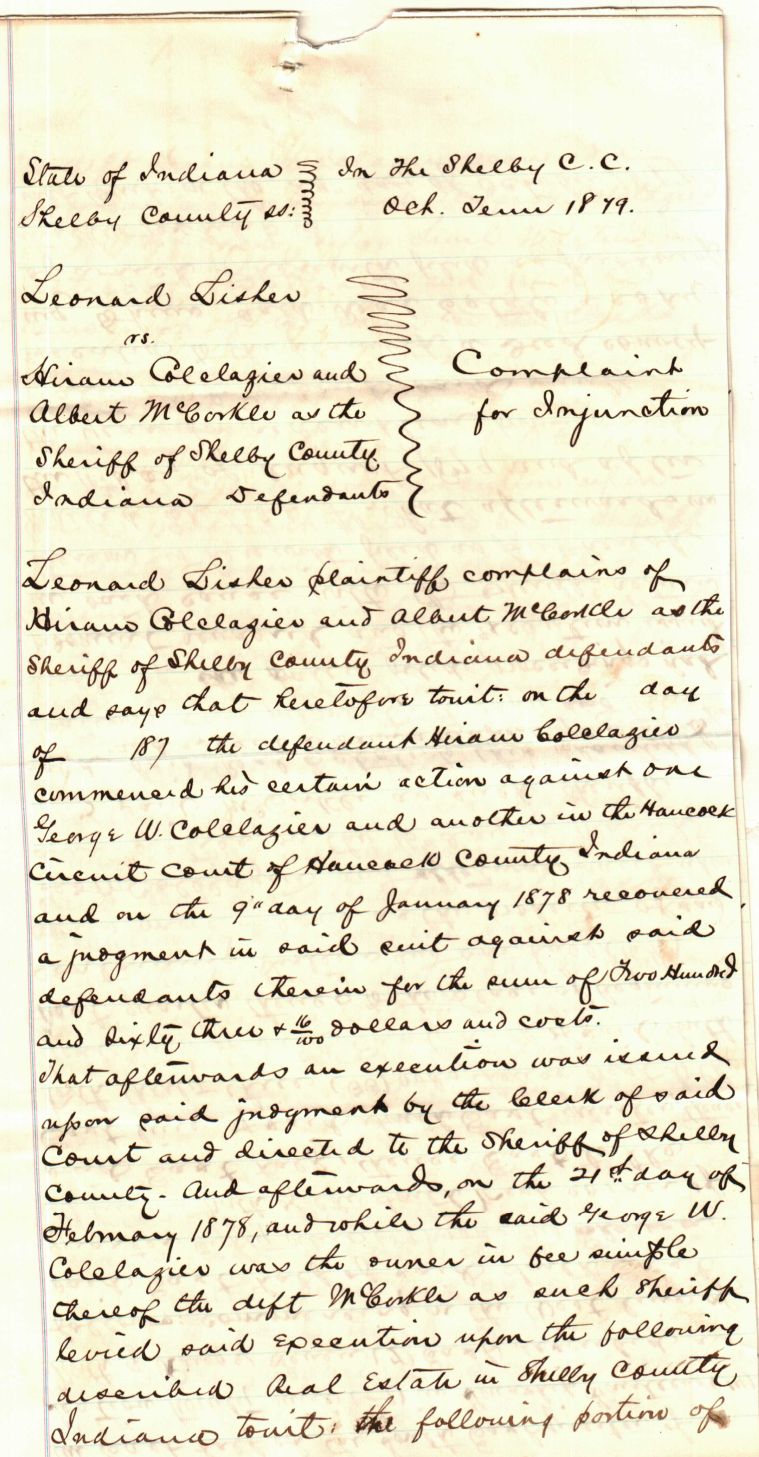 State of Indiana In The Shelby C. C.
Shelby County ss: Oct. Term 1879.
Leonard Lisher
vs.
Hiram Colclazier and
Albert McCorkle as the
Sheriff of Shelby County
Indiana Defendants
Complaint
for Injunction
Leonard Lisher plaintiff complains of
Hiram Colclazier and Albert McCorkle as the
Sheriff of Shelby County Indiana defendants
and says that heretofore towit: on the day
of 187 the defendant Hiram Colclazier
commenced his certain action against one
George W. Colclazier and another in the Hancock
Circuit Court of Hancock County Indiana
and on the 9" day of January 1878 recovered
a judgment in said suit against said
defendants therein for the sum of Two Hundred
and Sixty three & 16/100 dollars and costs.
That afterwards an execution was issued
upon said judgment by the Clerk of said
Court and directed to the Sheriff of Shelby
County. And afterwards, on the 21st day of
February 1878, and while the said George W.
Colclazier was the owner in fee simple
thereof the deft McCorkle as such Sheriff
levied said Execution upon the following
described Real Estate in Shelby County
Indiana towit: the following portion of